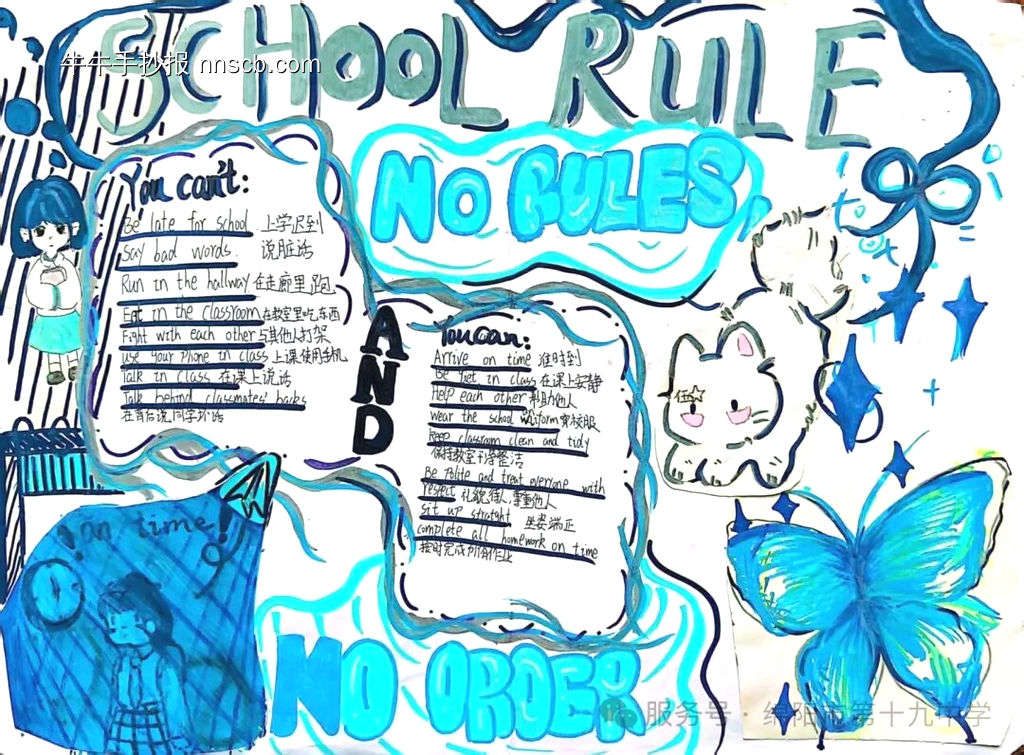 SCHOOL RULE
牛牛手抄报 nnscb.com
NO RULES,
You can't:
Be late for school 上学迟到
Say bad words. 说脏话
Run in the hallway 在走廊里跑
Eat in the classroom 在教室里吃东西
Fight with each other 与其他人打架
Use your Phone in class 上课使用手机
Talk in class 在课上说话
Talk behind classmates' backs
在背后说同学坏话
AND
You can:
Arrive on time 准时到
Be qiet in class 在课上安静
Help each other 帮助他人
wear the school uniform 穿校服
Keep classroom clean and tidy
保持教室干净整洁
Be Polite and treat everyone with
respect 礼貌待人,尊重他人
sit up straight 坐姿端正
complete all homework on time
按时完成所有作业
on time!
NO ORDER
服务号·绵阳市第十九中学